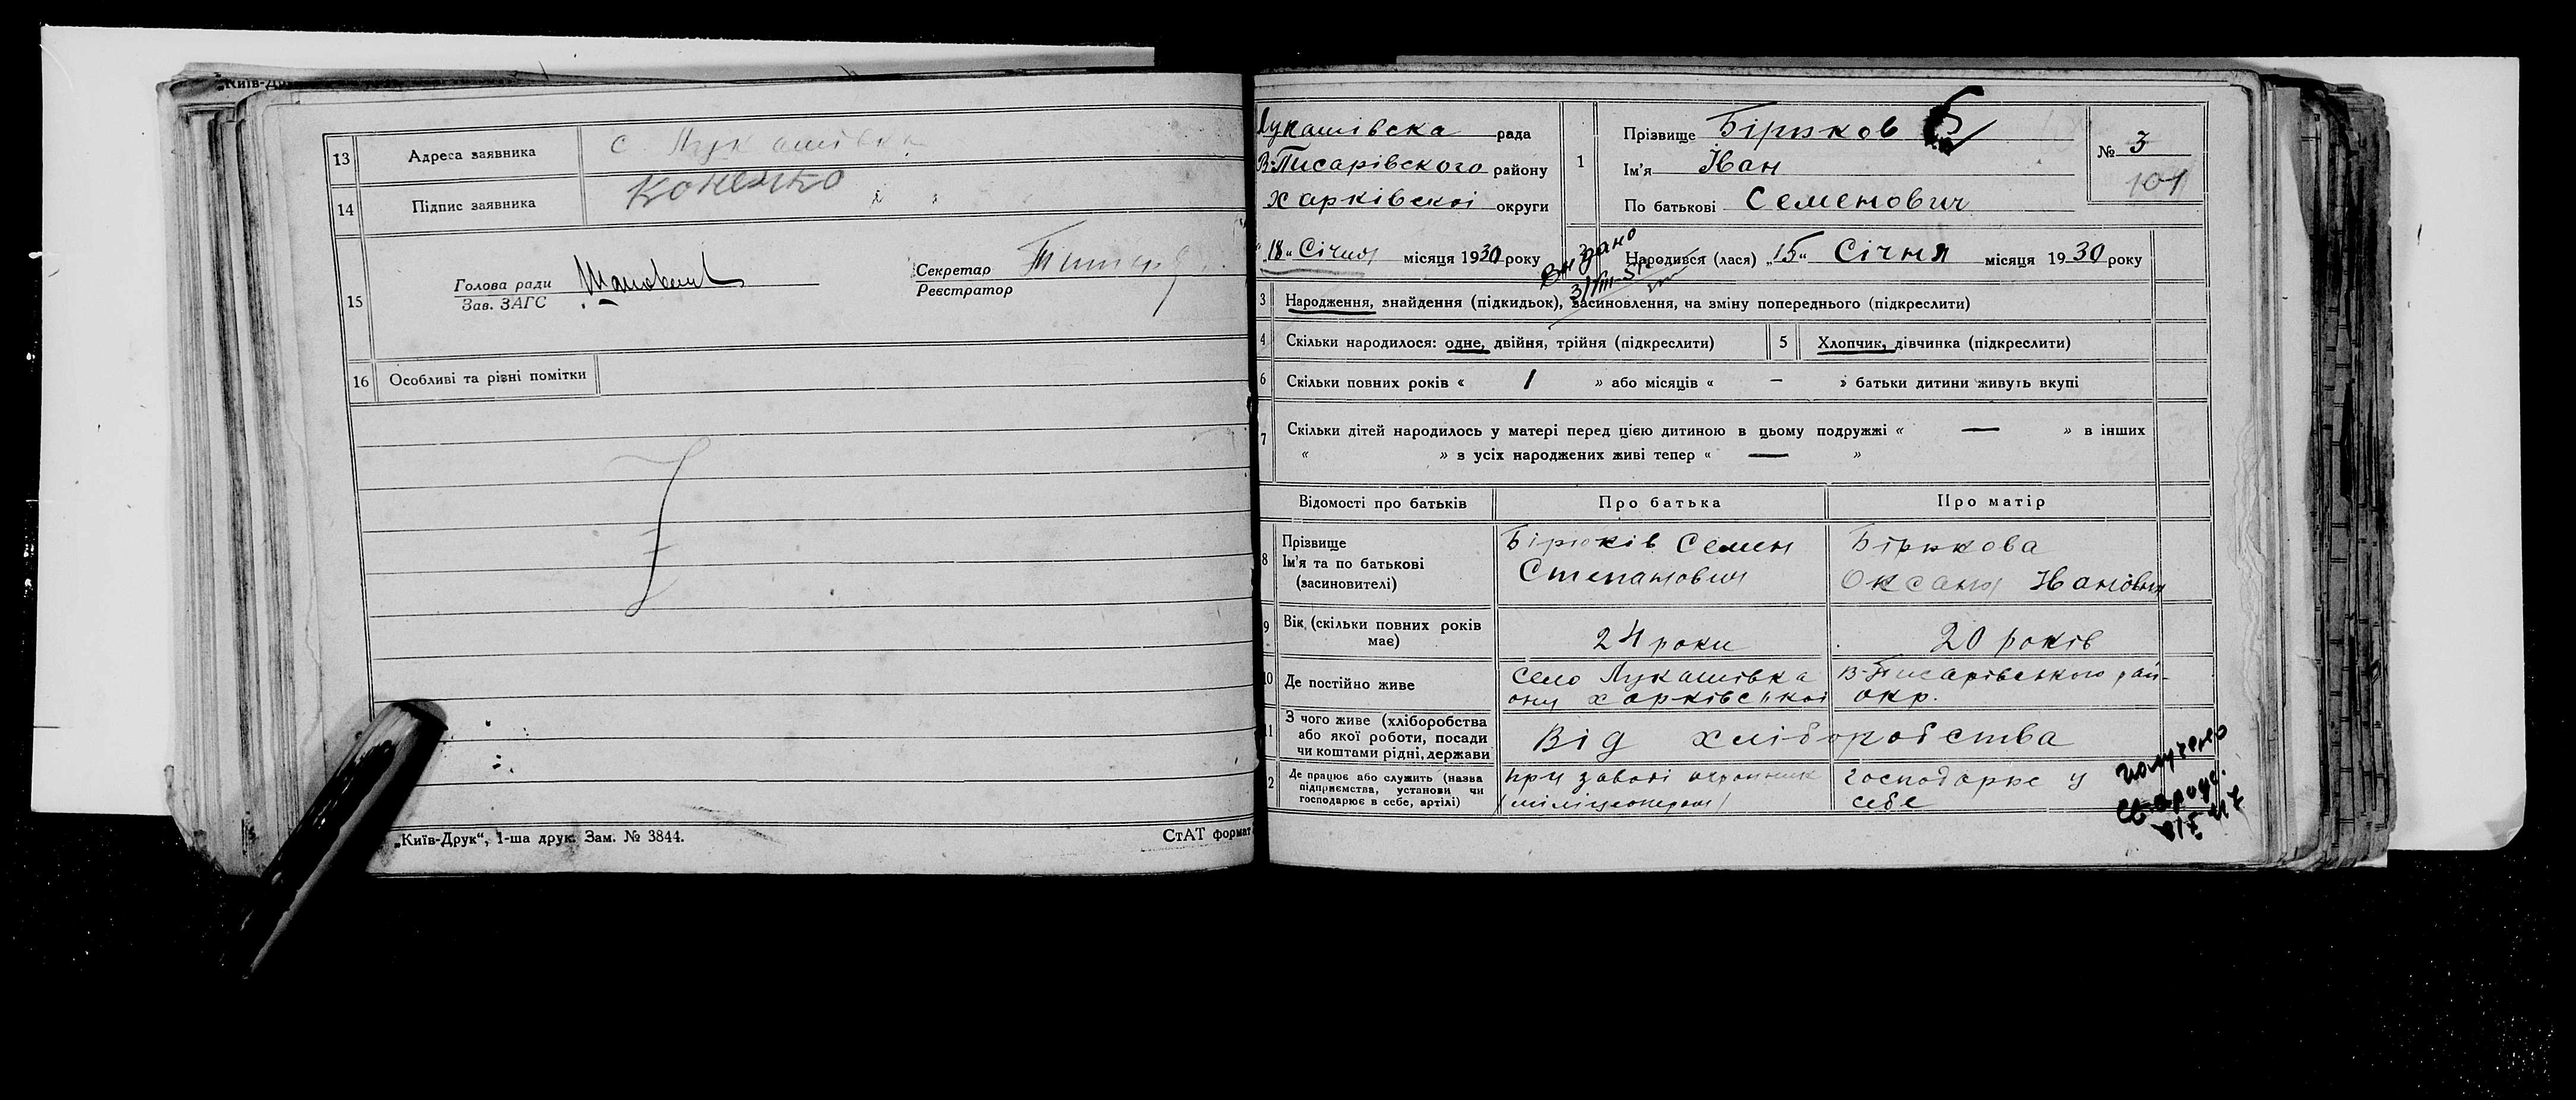 13 Адреса заявника с. Лукашівка
14 Підпис заявника
15 Голова ради
Зав. ЗАГС
Секретар
Реєстратор
16 Особливі та різні помітки
„Київ-Друк“, 1-ша друк. Зам. № 3844.
СтАТ формат
Лукашівска рада
В-Писарівского району
Харківскоі округи
„18“ Січня місяця 1930 року
1 Прізвище Бірюков
Ім'я Іван
По батькові Семенович
№ 3
101
Видано
Народився (лася) „15“ Січня місяця 1930 року
3 Народження, знайдення (підкидьок), засиновлення, на зміну попереднього (підкреслити)
4 Скільки народилося: одне, двійня, трійня (підкреслити) 5 Хлопчик, дівчинка (підкреслити)
6 Скільки повних років « 1 » або місяців « — » батьки дитини живуть вкупі
7 Скільки дітей народилось у матері перед цією дитиною в цьому подружжі « — » в інших
« » з усіх народжених живі тепер « — »
Відомості про батьків Про батька Про матір
8 Прізвище
Ім'я та по батькові
(засиновителі)
Бірюків Семен
Степанович
Бірюкова
Оксана Ивановна
9 Вік (скільки повних років
має)
24 роки
20 років
10 Де постійно живе
село Лукашівка В-Писарівського рай-
ону Харківськоі окр.
11 З чого живе (хліборобства
або якої роботи, посади
чи коштами рідні, держави
Від хліборобства
2 Де працює або служить (назва
підприємства, установи чи
господарює в себе, артілі)
при заводі охронник
(міліционером)
господарює у
себе
получено